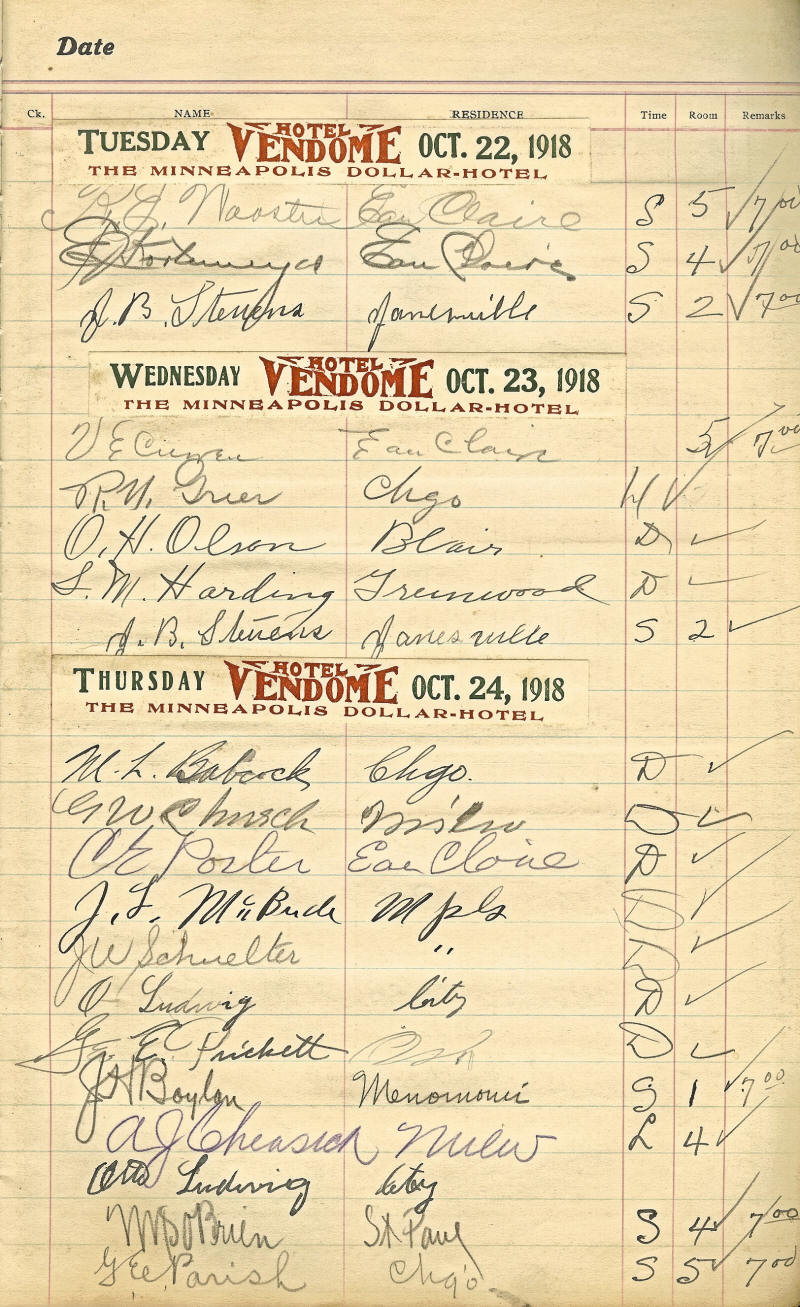 Date
Ck. NAME RESIDENCE Time Room Remarks
TUESDAY HOTEL VENDOME OCT. 22, 1918
THE MINNEAPOLIS DOLLAR-HOTEL
Eau Claire S 5 ✓ 7.00
Eau Claire S 4 ✓ 7.00
J. B. Stevens Janesville S 2 ✓ 7.00
WEDNESDAY HOTEL VENDOME OCT. 23, 1918
THE MINNEAPOLIS DOLLAR-HOTEL
V E Eau Clair 5 ✓ 7.00
Grier Chgo ✓
O. H. Olson Blair D ✓
S. M. Harding Greenwood D ✓
J. B. Stevens Janesville S 2 ✓
THURSDAY HOTEL VENDOME OCT. 24, 1918
THE MINNEAPOLIS DOLLAR-HOTEL
M. L. Babcock Chgo. D ✓
G W Milw D ✓
C E Porter Eau Claire D ✓
J. L. McBride Mpls D ✓
J W Schuelter " D ✓
O Ludwig City D ✓
E. Prickett D ✓
J H Boylan Menomonie S 1 ✓ 7 00
A J Milw L 4 ✓
Otto Ludwig City
O'Brien St Paul S 4 ✓ 7 00
Parish Chgo S 5 ✓ 7 00